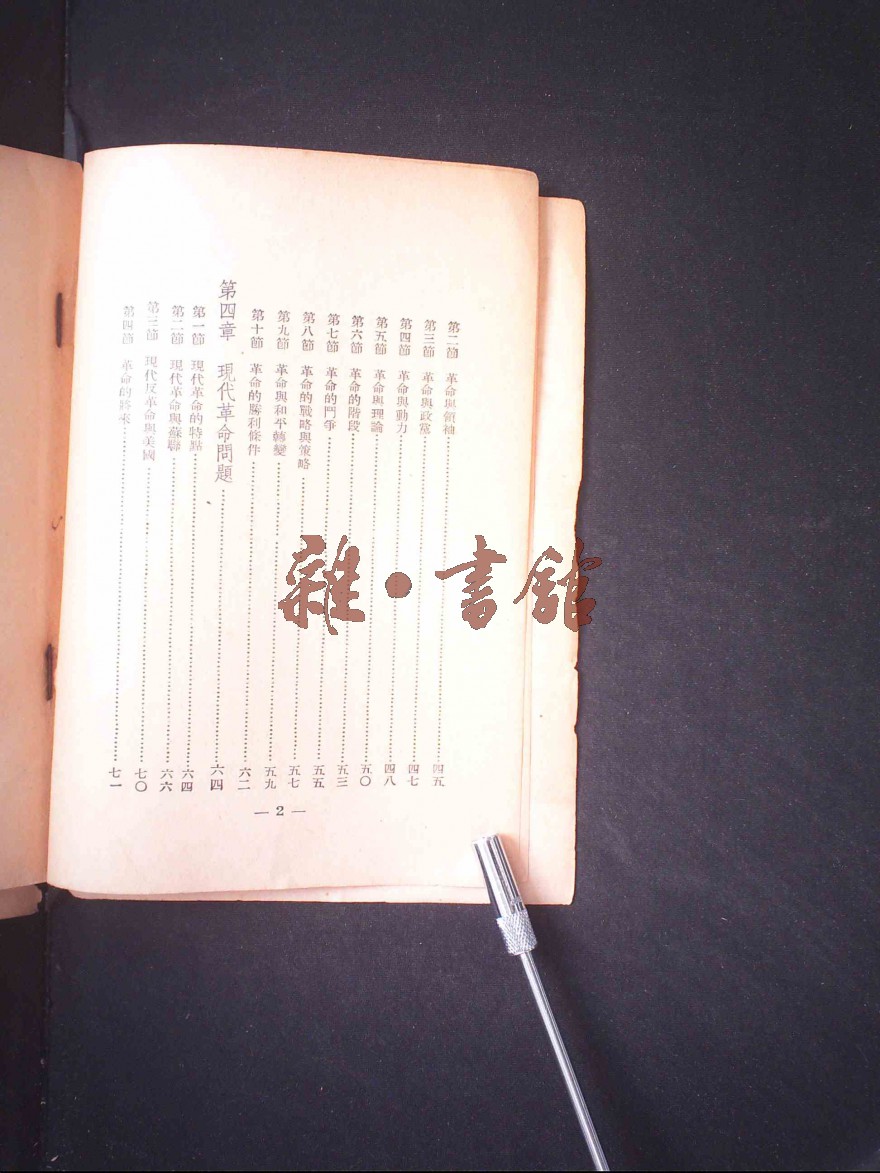 第二節 革命與領袖……四五
第三節 革命與政黨……四七
第四節 革命與動力……四八
第五節 革命與理論……五〇
第六節 革命的階段……五三
第七節 革命的鬥爭……五五
第八節 革命的戰略與策略……五七
第九節 革命與和平轉變……五九
第十節 革命的勝利條件……六二
第四章 現代革命問題……六四
第一節 現代革命的特點……六四
第二節 現代革命與蘇聯……六六
第三節 現代反革命與美國……七〇
第四節 革命的將來……七一
— 2 —
雜·書館